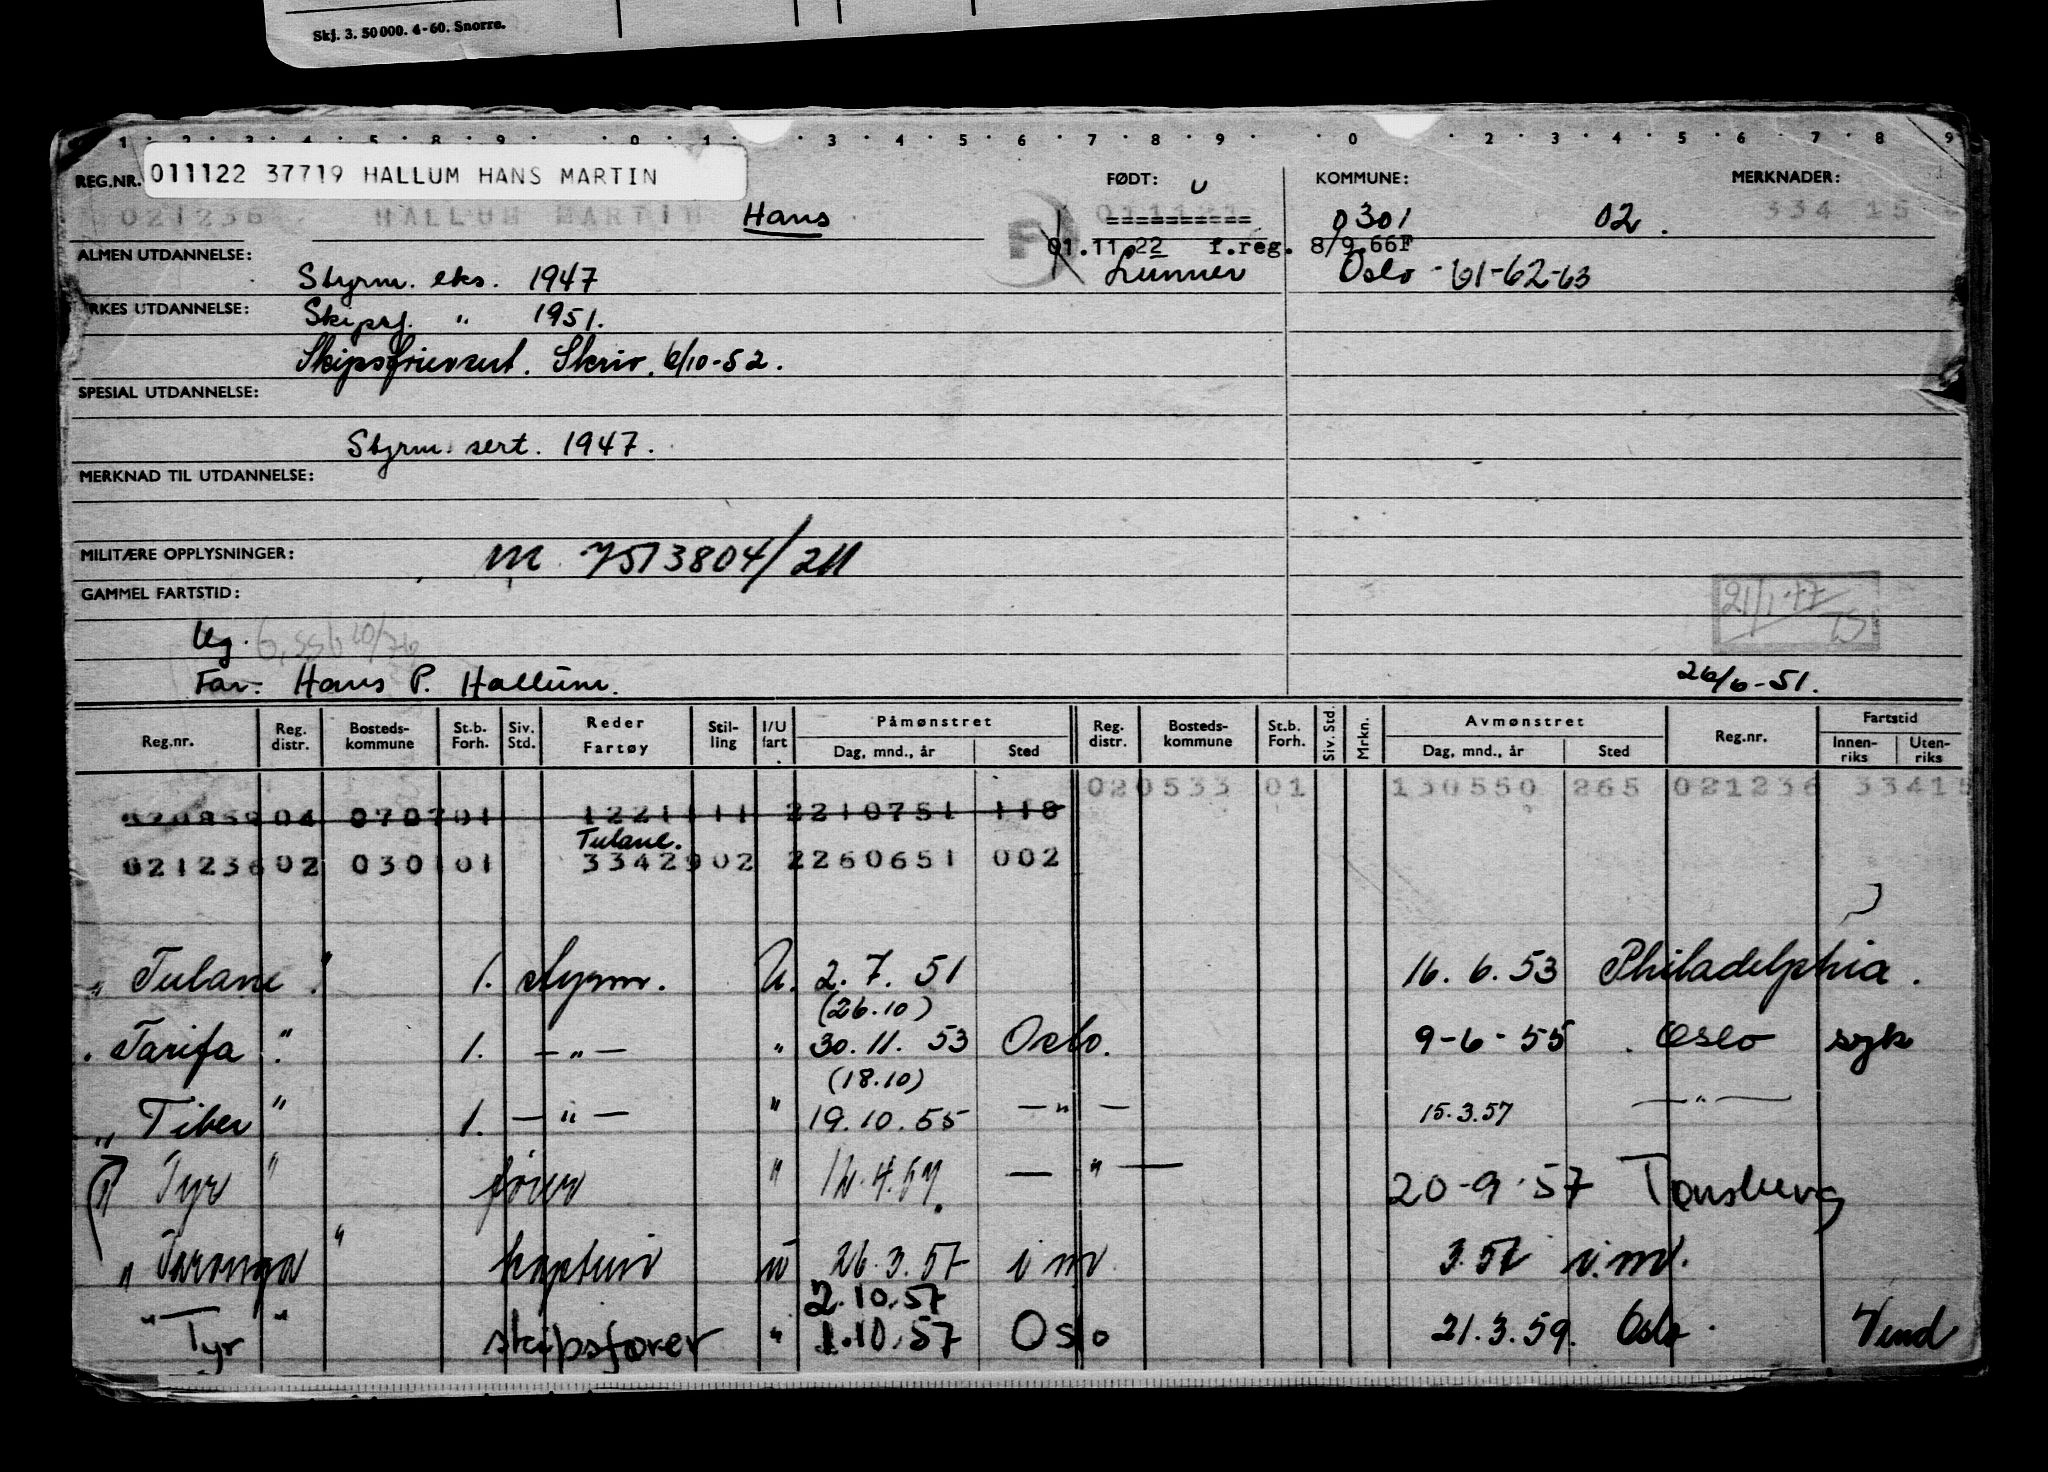 Skj. 3. 50 000. 4-60. Snorre.
1 2 3 4 5 8 9 0 1 3 4 5 6 7 8 9 0 2 3 4 5 6 7 8 9
REG.NR. 011122 37719 HALLUM HANS MARTIN FØDT: U KOMMUNE: MERKNADER:
021236 HALLUM MARTIN Hans 0301 02. 334 15
F 01.11.22 f.reg. 8/9.66F
ALMEN UTDANNELSE: Styrm. eks. 1947 Lunner Oslo -61-62-63
YRKES UTDANNELSE: Skipsf. " 1951.
Skipsførersert. Skriv. 6/10-52.
SPESIAL UTDANNELSE:
Styrm. sert. 1947.
MERKNAD TIL UTDANNELSE:
MILITÆRE OPPLYSNINGER: M 7513804/211
GAMMEL FARTSTID: 21/1-77
Ug.
Far: Hans P. Hallum. 26/6-51.
Reg.nr. Reg. distr. Bosteds-kommune St.b. Forh. Siv. Std. Reder Fartøy Stil-ling I/U fart Påmønstret Dag, mnd., år Sted Reg. distr. Bosteds-kommune St.b. Forh. Siv. Std. Mrkn. Avmønstret Dag, mnd., år Sted Reg.nr. Fartstid Innen-riks Uten-riks
020533 01 130550 265 021236 33415
04 070701 1221111 2210751 118
Tulane.
02123602 030101 3342902 2260651 002
" Tulane " 1. styrm. U. 2.7.51 16.6.53 Philadelphia.
(26.10)
" Tarifa " 1. — " — " 30.11.53 Oslo. 9-6-55 Oslo syk
(18.10)
" Tiber " 1. — " — " 19.10.55 — " — 15.3.57 — " —
" Tyr " fører " 12.4.57. — " — 20-9-57 Tønsberg
" Taronga " kaptein u 26.3.57 i nv. 3.57 i.nv.
2.10.57
" Tyr " skipsfører " 1.10.57 Oslo 21.3.59. Oslo. Vend